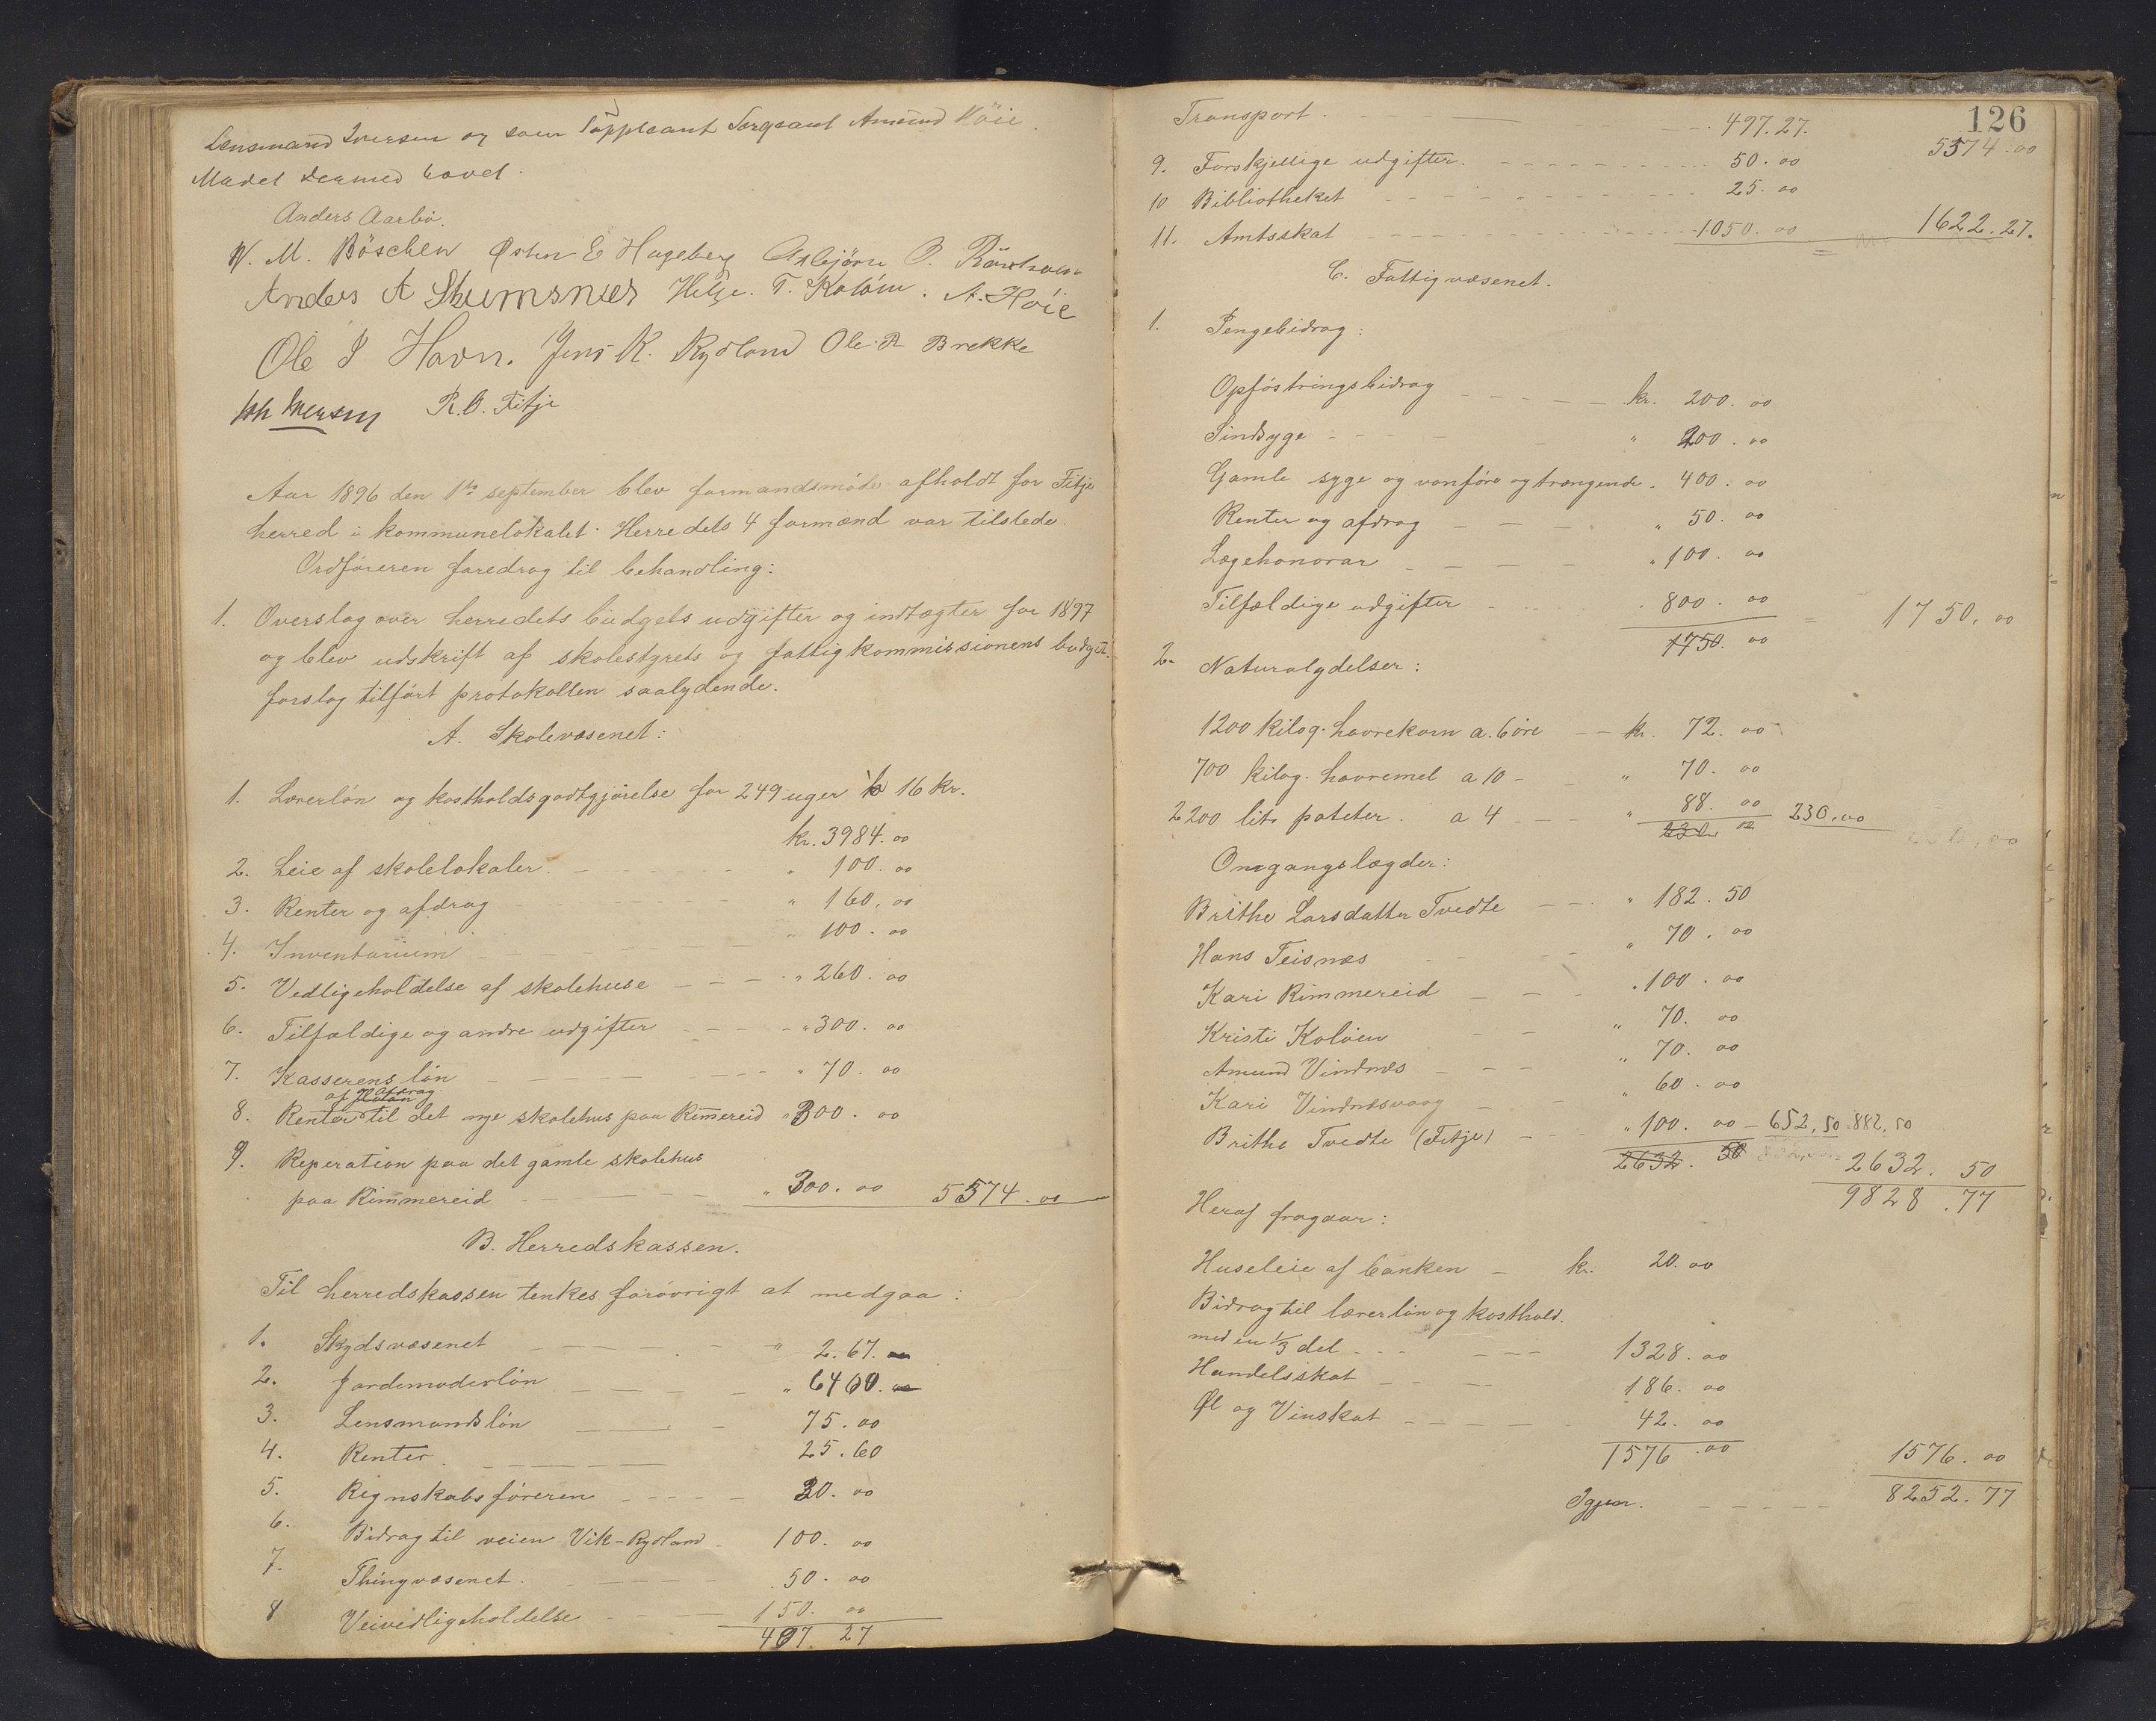 Lensmand Iversen og som Suppleant Sergeant Amund Höie.
Mødet dermed hævet.
Anders Aarbö.
W. M. Böschen Østen E Hageberg Asbjörn O.
Anders A Skumsnes Helge. T. Kolöen. A. Höie
Ole J Havn. Jens K. Rydland Ole. R Brekke
Joh Iversen R. O. Fitje
Aar 1896 den 1ste september blev formandsmöde afholdt for Fitje
herred i kommunelokalet. Herredets 4 formænd var tilstede.
Ordføreren foredrog til behandling:
1. Overslag over herredets budgets udgifter og indtægter for 1897
og blev udskrift af skolestyrets og fattigkommissionens budget
forslag tilfört protokollen saalydende.
A. Skolevæsenet:
1. Lærerlön og kostholdsgodtgjörelse for 249 uger à 16 kr.
kr. 3984. 00
2. Leie af skolelokaler. " 100. 00
3. Renter og afdrag " 160. 00
4. Inventarium " 100. 00
5. Vedligeholdelse af skolehuse " 260. 00
6. Tilfældige og andre udgifter " 300. 00
7. Kasserens lön " 70. 00
af afdrag
8. Renter til det nye skolehus paa Rimmereid " 300. 00
9. Reperation paa det gamle skolehus
paa Rimmereid " 300. 00 5574. 00
B. Herredskassen.
Til herredskassen tenkes forövrigt at medgaa:
1. Skydsvæsenet " 2. 67.
2. Jordemoderlön " 64 00.
3. Lensmandslön 75. 00
4. Renter 25. 60
5. Regnskabsföreren 30. 00
6. Bidrag til veien Vik-Rydland 100. 00
7. Thingvæsenet. 50. 00
8 Veivedligeholdelse 150. 00
497. 27
126
Transport. 497. 27. 5574. 00
9. Forskjellige udgifter. 50. 00
10 Bibliotheket 25. 00
11. Amtsskat 1050. 00 1622. 27.
C. Fattigvæsenet.
1. Pengebidrag:
Opföstringsbidrag kr. 200. 00
Sindsyge " 200. 00
Gamle syge og vanföre og trængende. 400. 00
Renter og afdrag " 50. 00
Lægehonorar " 100. 00
Tilfældige udgifter 800. 00
1750. 00 = 1750. 00
2. Naturalydelser:
1200 kilog. havrekorn a. 6 öre kr. 72. 00
700 kilog. havremel a 10 - " 70. 00
2200 litr poteter. a 4 " 88. 00
230. 230,00
Omgangslægder:
Brithe Larsdatter Tvedte " 182. 50
Hans Teisnæs " 70. 00
Kari Rimmereid " 100. 00
Kristi Kolöen " 70. 00
Amund Vindnæs " 70. 00
Kari Vindnæsvaag " 60. 00
Brithe Tvedte (Fitje) " 100. 00 - 652,50 882,50
2632. 50 2632. 50
9828. 77
Heraf fragaar:
Huseleie af banken kr. 20. 00
Bidrag til lærerlön og kosthold.
med en 1/3 del 1328. 00
Handelsskat 186. 00
Øl og Vinskat 42. 00
1576. 00 1576. 00
Igjen. 8252. 77